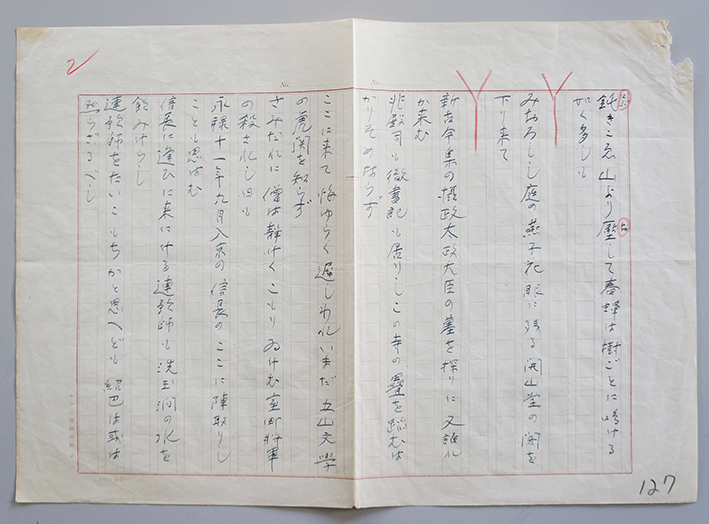 鈍きこゑ山より壓して春蝉は樹ごとに鳴ける
かく多しも
みおろしし庭の燕子花眼に残る開山堂の闇を
下り来て
新古今集の摂政太政大臣の墓を探りに又誰れ
か来む
兆殿司も徹書記も居りしこの寺の甃を踏むは
かりそめならず
ここに来て悔ゆらく遅しわれいまだ五山文学
の虎関を知らず
さみだれに僧は静けくこもりゐけむ室町将軍
の殺されし日も
永禄十一年九月入京の信長のここに陣取りし
ことも思はむ
信長に逢ひに来にける連歌師も洗玉澗の水を
飲みけらし
連歌師をたいこもちかと思へども紹巴は或は
然らざるべし
No.
No.
2
127